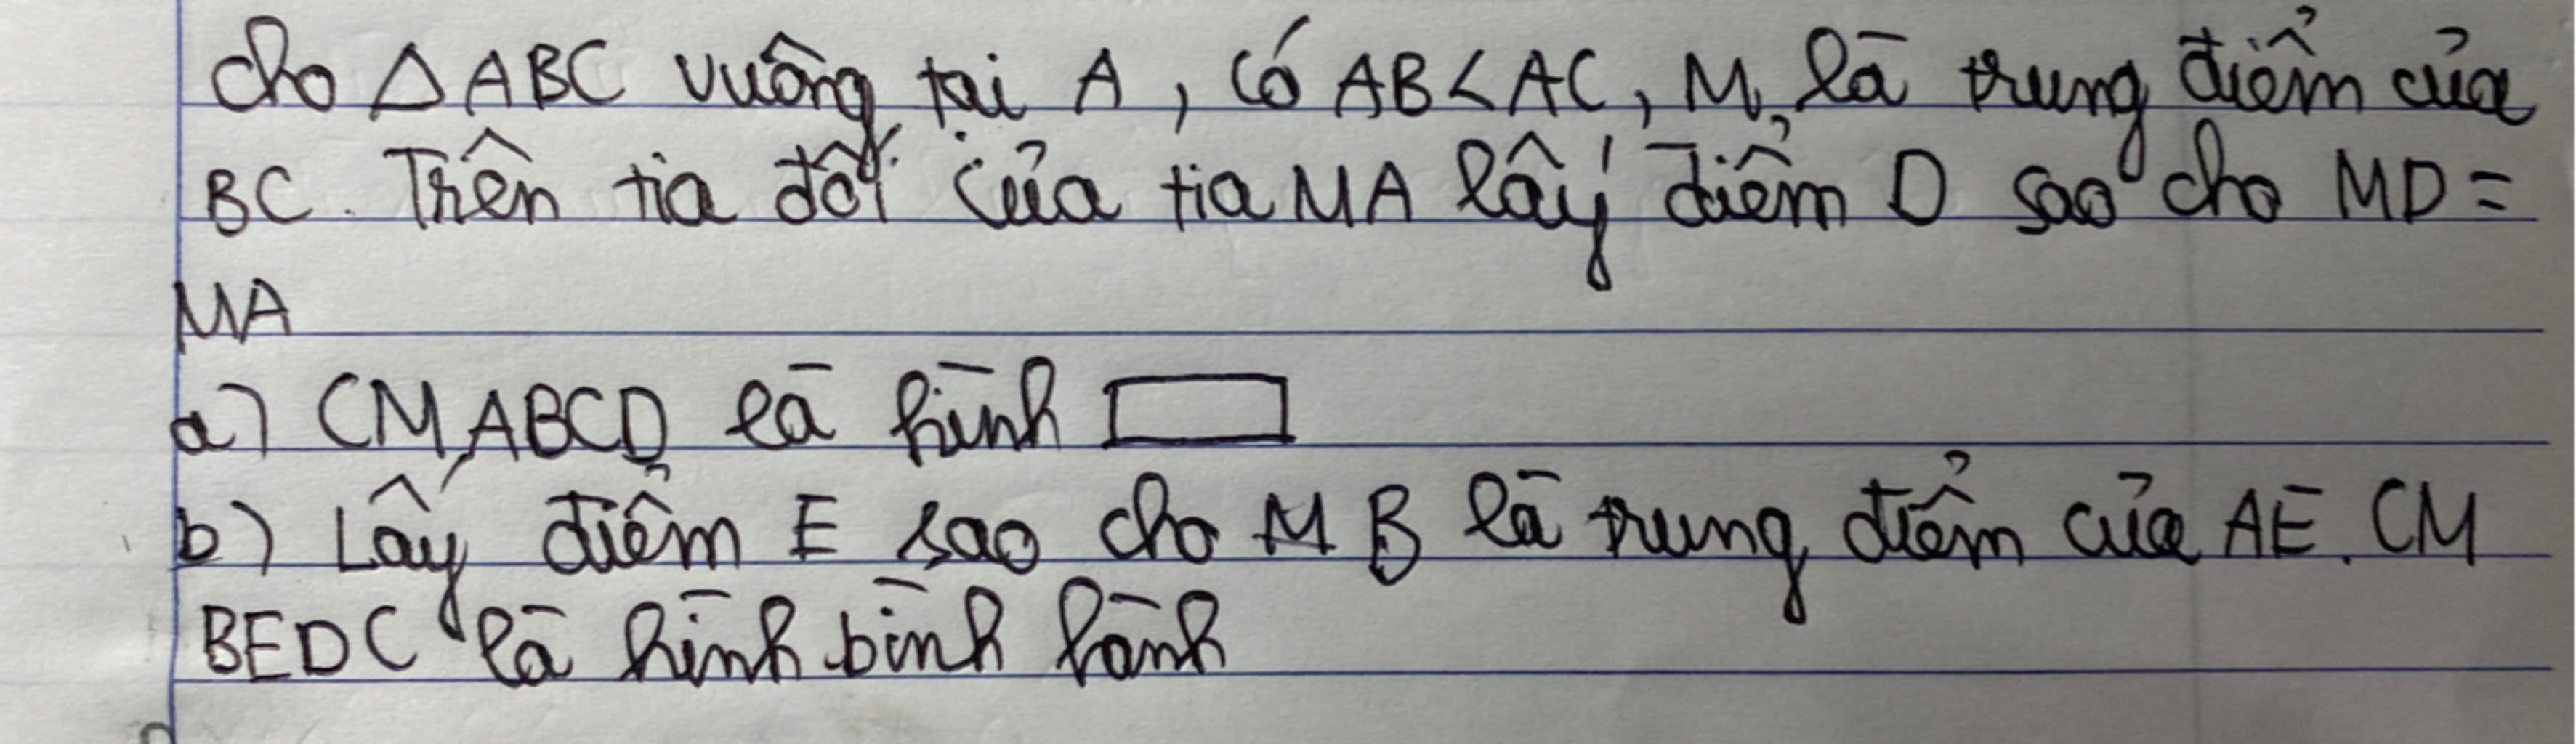 Cho △ABC vuông tại A, có AB<AC, M là trung điểm của
BC. Trên tia đối của tia MA lấy điểm D sao cho MD=
MA
a) CM ABCD là hình ▭
b) Lấy điểm E sao cho M B là trung điểm của AE. CM
BEDC là hình bình hành